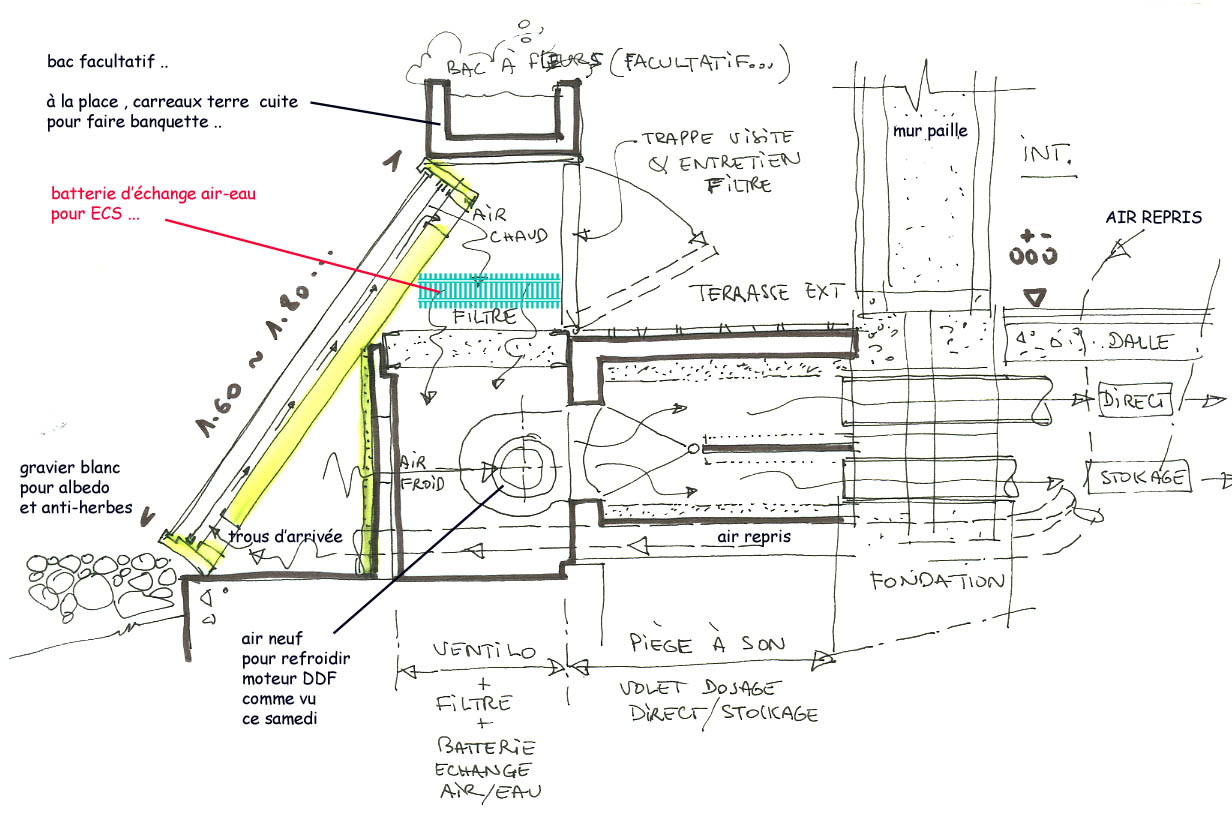 bac facultatif ..
à la place , carreaux terre cuite
pour faire banquette ..
BAC À FLEURS (FACULTATIF...)
TRAPPE VISITE
& ENTRETIEN
FILTRE
mur paille
INT.
AIR REPRIS
+ -
000
batterie d'échange air-eau
pour ECS ...
AIR
CHAUD
1.60 ~ 1.80...
FILTRE
TERRASSE EXT
DALLE
DIRECT
STOCKAGE
AIR
FROID
gravier blanc
pour albedo
et anti-herbes
trous d'arrivée
air repris
FONDATION
air neuf
pour refroidir
moteur DDF
comme vu
ce samedi
VENTILO
+
FILTRE
+
BATTERIE
ECHANGE
AIR/EAU
PIÈGE À SON
VOLET DOSAGE
DIRECT/STOCKAGE